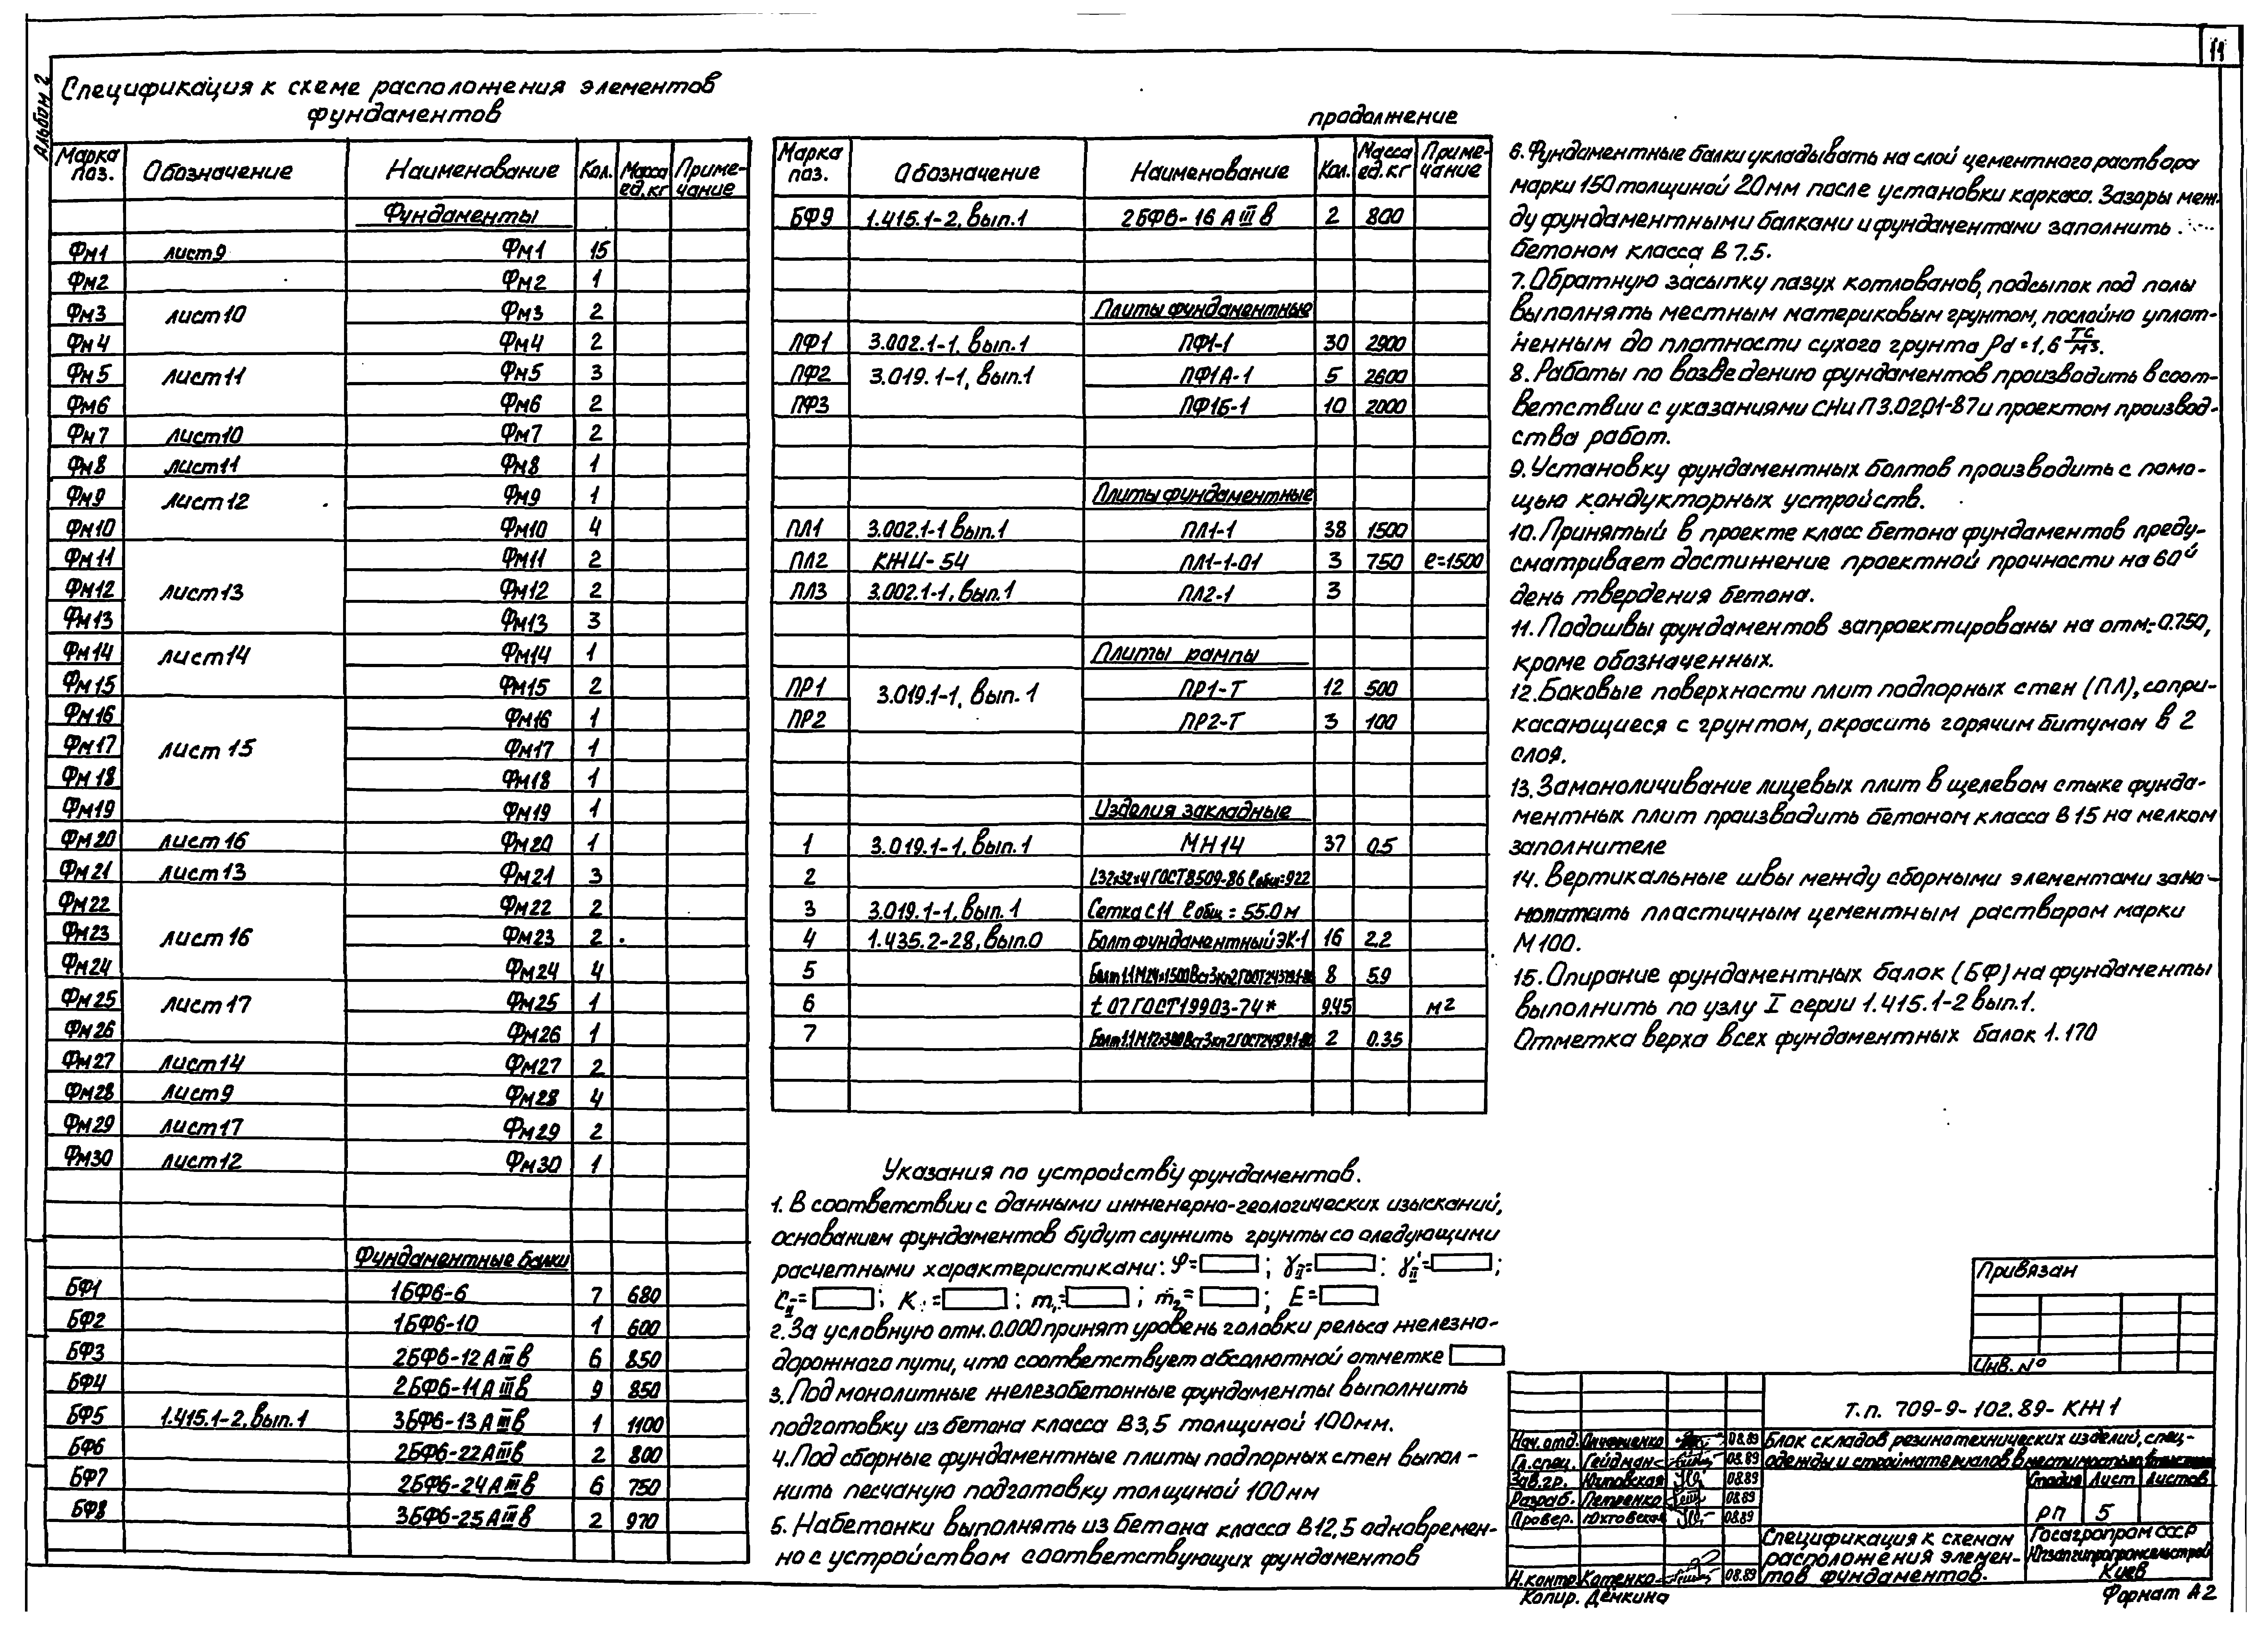 11
Альбом 2
Спецификация к схеме расположения элементов
фундаментов
Марка поз. Обозначение Наименование Кол. Масса ед.кг Приме-чание
Фундаменты
Фм1 лист9 Фм1 15
Фм2 Фм2 1
Фм3 лист10 Фм3 2
Фм4 Фм4 2
Фм5 лист11 Фм5 3
Фм6 Фм6 2
Фм7 лист10 Фм7 2
Фм8 лист11 Фм8 1
Фм9 лист12 Фм9 1
Фм10 Фм10 4
Фм11 Фм11 2
Фм12 лист13 Фм12 2
Фм13 Фм13 3
Фм14 лист14 Фм14 1
Фм15 Фм15 2
Фм16 Фм16 1
Фм17 лист 15 Фм17 1
Фм18 Фм18 1
Фм19 Фм19 1
Фм20 лист16 Фм20 1
Фм21 лист13 Фм21 3
Фм22 Фм22 2
Фм23 лист16 Фм23 2
Фм24 Фм24 4
Фм25 лист17 Фм25 1
Фм26 Фм26 1
Фм27 лист14 Фм27 2
Фм28 лист9 Фм28 4
Фм29 лист17 Фм29 2
Фм30 лист12 Фм30 1
Фундаментные балки
БФ1 1БФ6-6 7 680
БФ2 1БФ6-10 1 600
БФ3 2БФ6-12АIIIв 6 850
БФ4 2БФ6-11АIIIв 9 850
БФ5 1.415.1-2.вып.1 3БФ6-13АIIIв 1 1100
БФ6 2БФ6-22АIIIв 2 800
БФ7 2БФ6-24АIIIв 6 750
БФ8 3БФ6-25АIIIв 2 970
продолжение
Марка поз. Обозначение Наименование Кол. Масса ед.кг Приме-чание
БФ9 1.415.1-2.вып.1 2БФ6-16АIIIв 2 800
Плиты фундаментные
ПФ1 3.002.1-1.вып.1 ПФ1-1 30 2900
ПФ2 3.019.1-1,вып.1 ПФ1А-1 5 2600
ПФ3 ПФ1Б-1 10 2000
Плиты фундаментные
ПЛ1 3.002.1-1 вып.1 ПЛ1-1 38 1500
ПЛ2 КЖИ-54 ПЛ1-1-01 3 750 ℓ=1500
ПЛ3 3.002.1-1.вып.1 ПЛ2-1 3
Плиты рампы
ПР1 3.019.1-1. вып. 1 ПР1-Т 12 500
ПР2 ПР2-Т 3 100
Изделия закладные
1 3.019.1-1.вып.1 МН14 37 0.5
2 L32х32х4 ГОСТ8509-86 ℓобщ=922
3 3.019.1-1.вып.1 Сетка С11 ℓобщ = 55.0м
4 1.435.2-28.вып.0 Болт фундаментный ЭК-1 16 2.2
5 Болт1.1М24х1500Вст3кп2ГОСТ24379.1-80 8 5.9
6 t 07 ГОСТ19903-74* 9.45 м2
7 Болт1.1М12х300Вст3кп2ГОСТ24379.1-80 2 0.35
Указания по устройству фундаментов.
1. В соответствии с данными инженерно-геологических изысканий,
основанием фундаментов будут служить грунты со следующими
расчетными характеристиками: φ= ; γII= ; γ'II= ;
CII= ; К = ; m1= ; m2= ; E=
2. За условную отм. 0.000 принят уровень головки рельса железно-
дорожного пути, что соответствует абсолютной отметке
3. Под монолитные железобетонные фундаменты выполнить
подготовку из бетона класса В3,5 толщиной 100мм.
4. Под сборные фундаментные плиты подпорных стен выпол-
нить песчаную подготовку толщиной 100мм
5. Набетонки выполнять из бетона класса В12,5 одновремен-
но с устройством соответствующих фундаментов
6. Фундаментные балки укладывать на слой цементного раствора
марки 150 толщиной 20мм после установки каркаса. Зазоры меж-
ду фундаментными балками и фундаментами заполнить
бетоном класса В 7.5.
7. Обратную засыпку пазух котлованов, подсыпок под полы
выполнять местным материковым грунтом, послойно уплот-
ненным до плотности сухого грунта ρd = 1,6 тс/м3.
8. Работы по возведению фундаментов производить в соот-
ветствии с указаниями СНиП 3.02.01-87 и проектом производ-
ства работ.
9. Установку фундаментных болтов производить с помо-
щью кондукторных устройств.
10. Принятый в проекте класс бетона фундаментов преду-
сматривает достижение проектной прочности на 60й
день твердения бетона.
11. Подошвы фундаментов запроектированы на отм.-0.750,
кроме обозначенных.
12. Боковые поверхности плит подпорных стен (ПЛ), сопри-
касающиеся с грунтом, окрасить горячим битумом в 2
слоя.
13. Замоноличивание лицевых плит в щелевом стыке фунда-
ментных плит производить бетоном класса В15 на мелком
заполнителе
14. Вертикальные швы между сборными элементами замо-
нолитить пластичным цементным раствором марки
М100.
15. Опирание фундаментных балок (БФ) на фундаменты
выполнить по узлу I серии 1.415.1-2 вып.1.
Отметка верха всех фундаментных балок 1.170
Привязан
Инв. №
Т.п. 709-9-102.89-КЖ1
Нач. отд. 08.89
Гл.спец. Гейдман 08.89
Зав.гр. Юхтовская 08.89
Разраб. Петренко 08.89
Провер. Юхтовская 08.89
Н.контр. Катенко 08.89
Блок складов резинотехнических изделий, спец-
одежды и стройматериалов вместимостью
Стадия Лист Листов
РП 5
Спецификация к схемам
расположения элемен-
тов фундаментов.
Госагропром СССР
Киев
Копир. Дёмкина
Формат А2